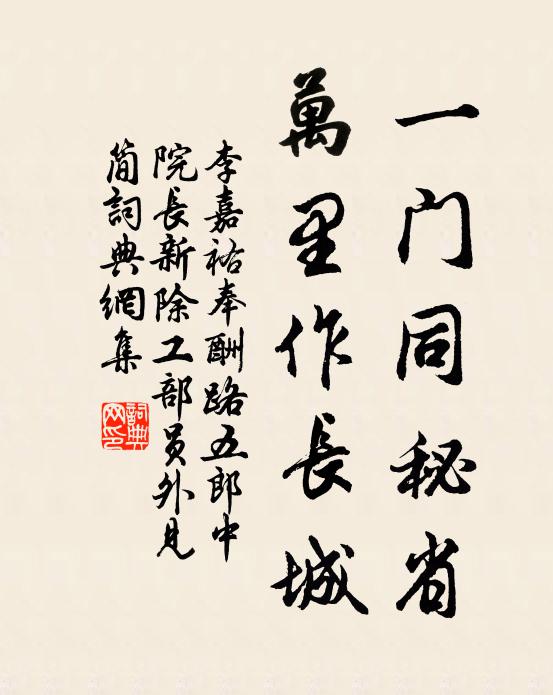 一门同秘省
萬里作長城
李嘉祐奉酬路五郎中
院長新除工部员外見
简詞典網集
詞典
网印